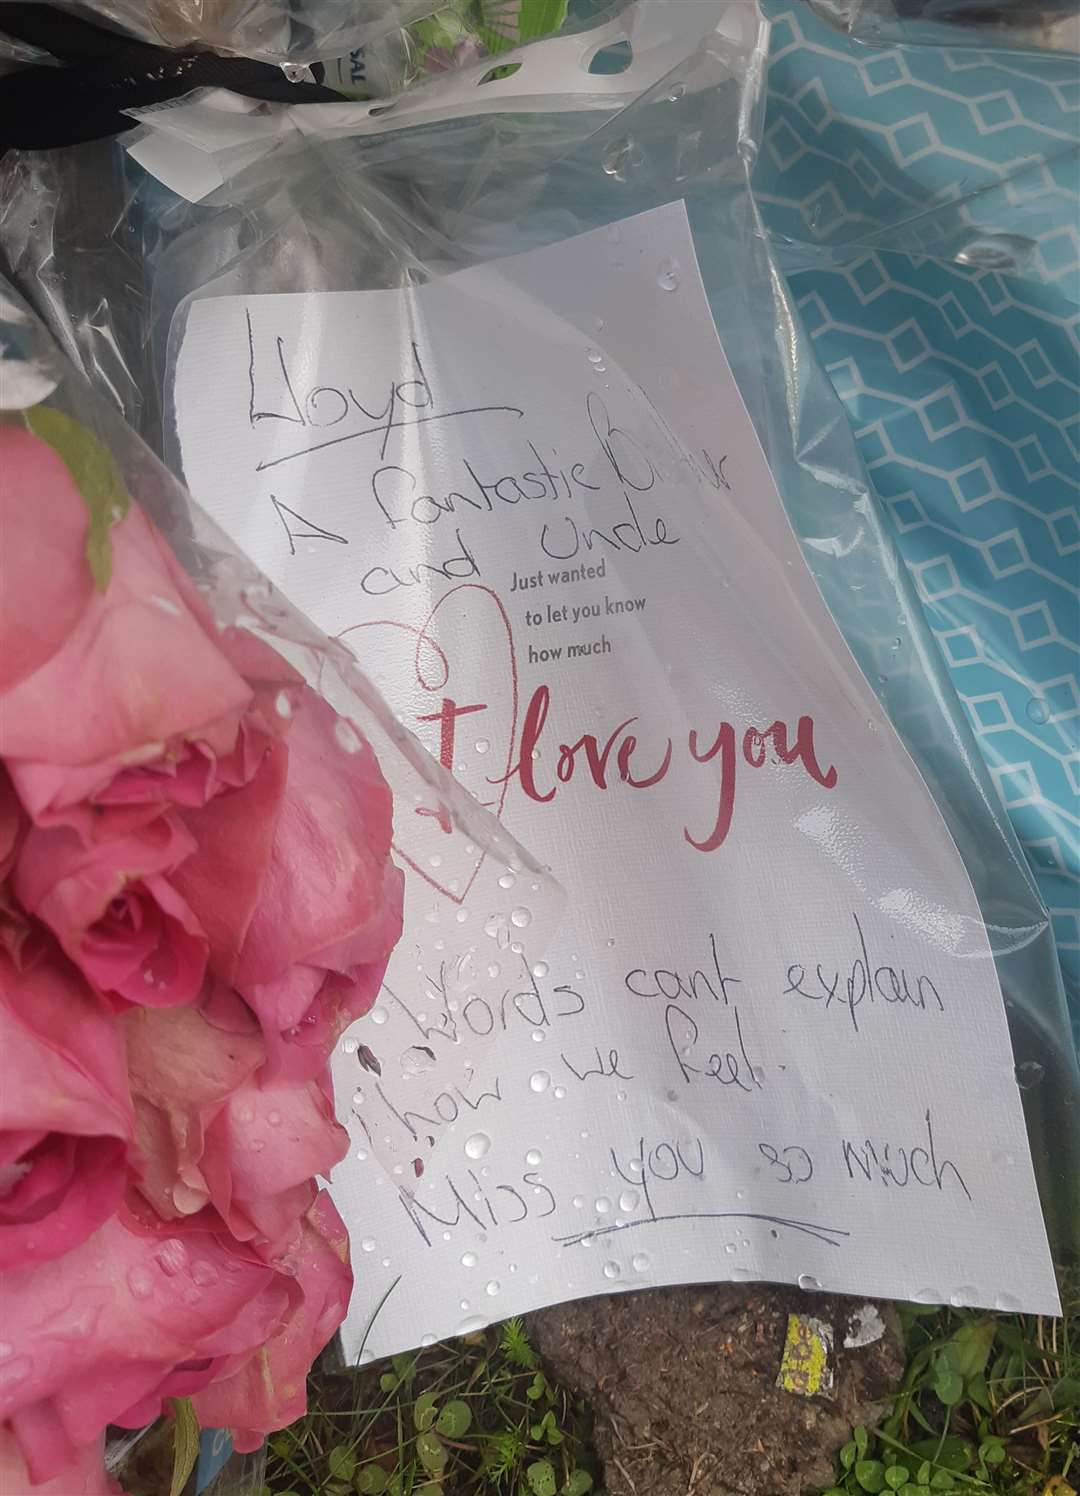 Lloyd
A fantastic
and Uncle
Just wanted
to let you know
how much
I love you
Words cant explain
how we feel.
Miss you so much